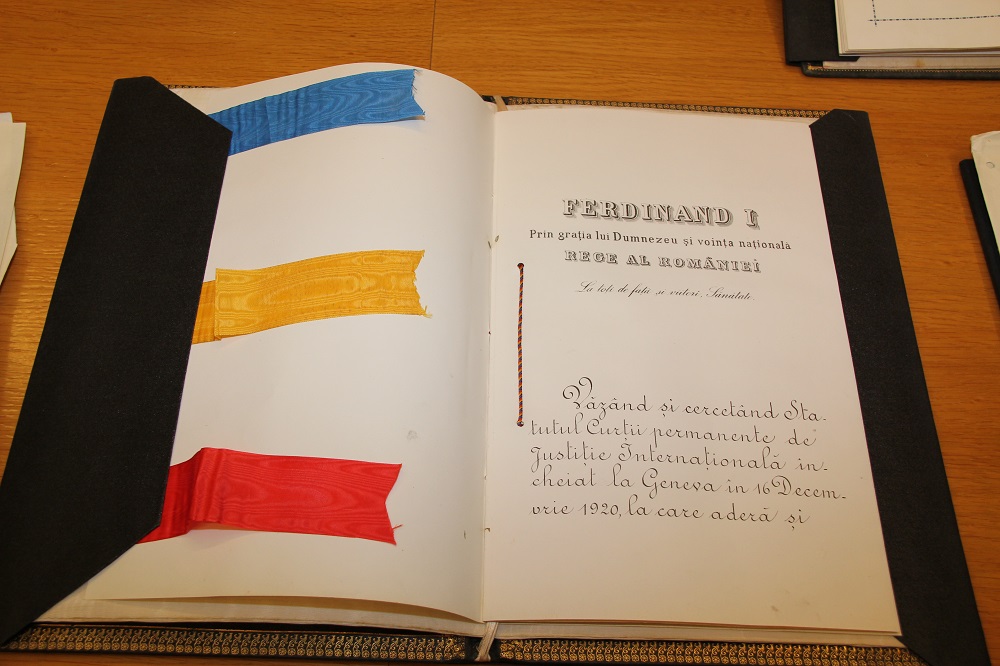 FERDINAND I
Prin grația lui Dumnezeu și voința națională
REGE AL ROMÂNIEI
La toti de față și viitori, Sănătate.
Văzând și cercetând Sta-
tutul Curții permanente de
Justiție Internațională în-
cheiat la Geneva în 16 Decem-
vrie 1920, la care aderă și